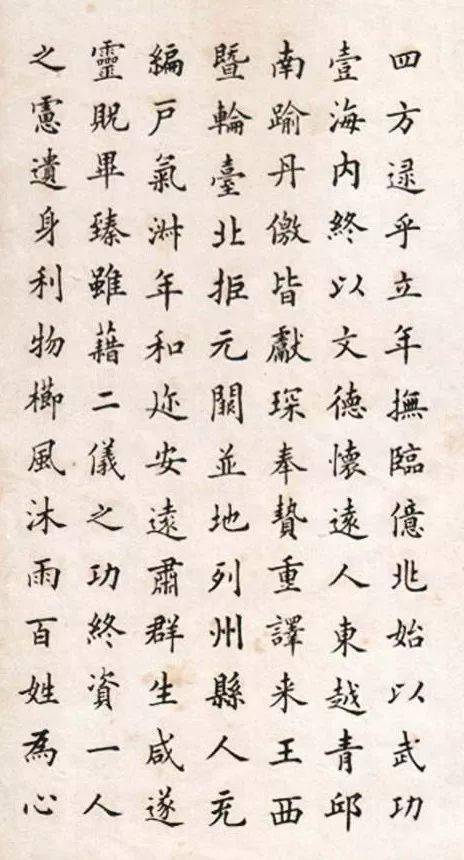 四方逮乎立年撫臨億兆始以武功
壹海内終以文德懷遠人東越青邱
南踰丹徼皆獻琛奉贄重譯来王西
暨輪臺北拒元闕並地列州縣人充
編戸氣淑年和迩安遠肅群生咸遂
靈貺畢臻雖藉二儀之功終資一人
之慮遺身利物櫛風沐雨百姓為心